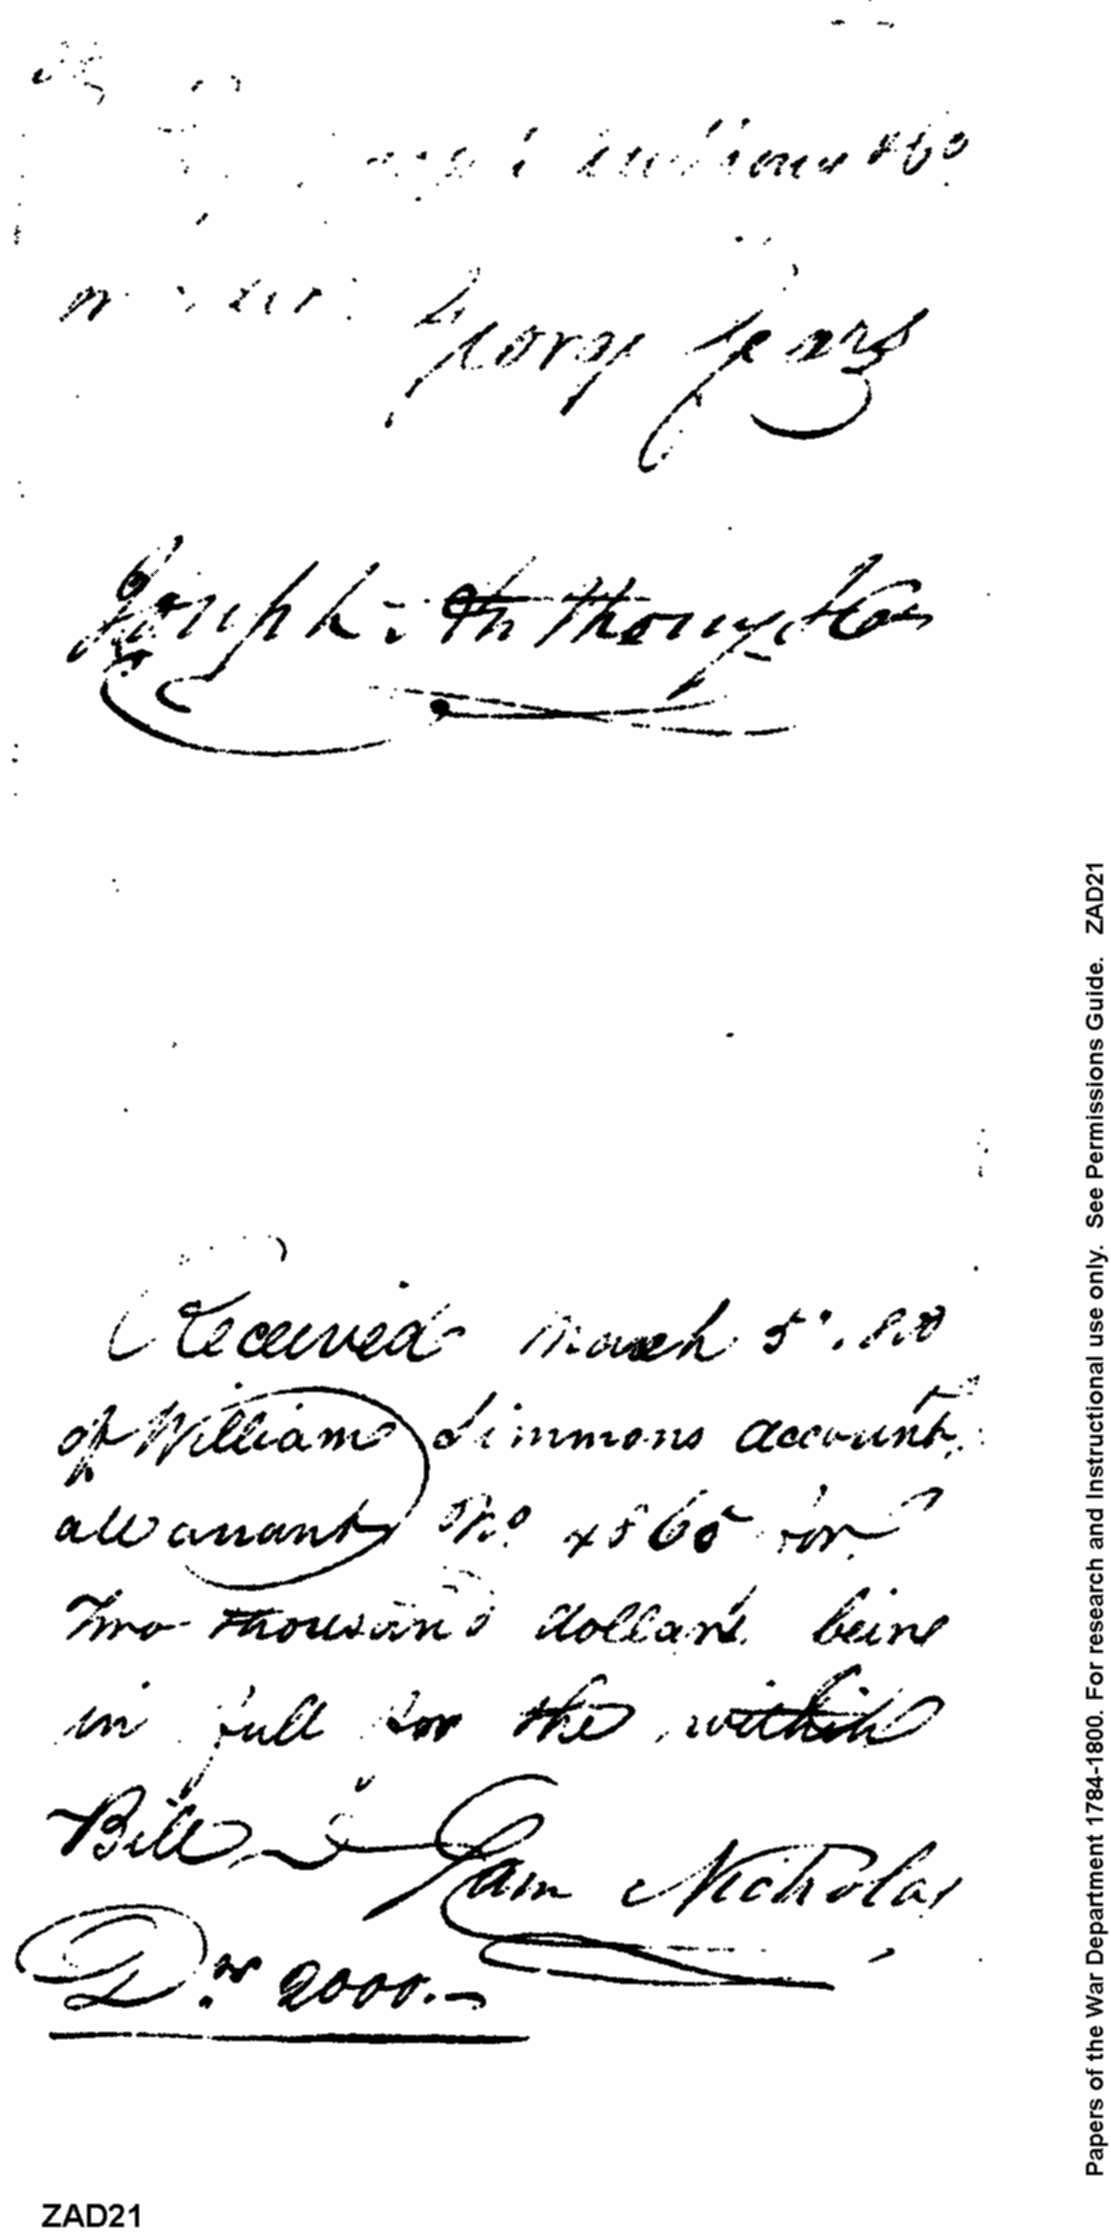 Georg Sears
Joseph Anthony & Co
Received March 5th. 1800
of William Simmons account,
a Warrant No. 4865 for
Two thousand dollars being
in full for the within
Bill
Sam Nicholas
Drs 2000.-
ZAD21
Papers of the War Department 1784-1800. For research and Instructional use only. See Permissions Guide. ZAD21